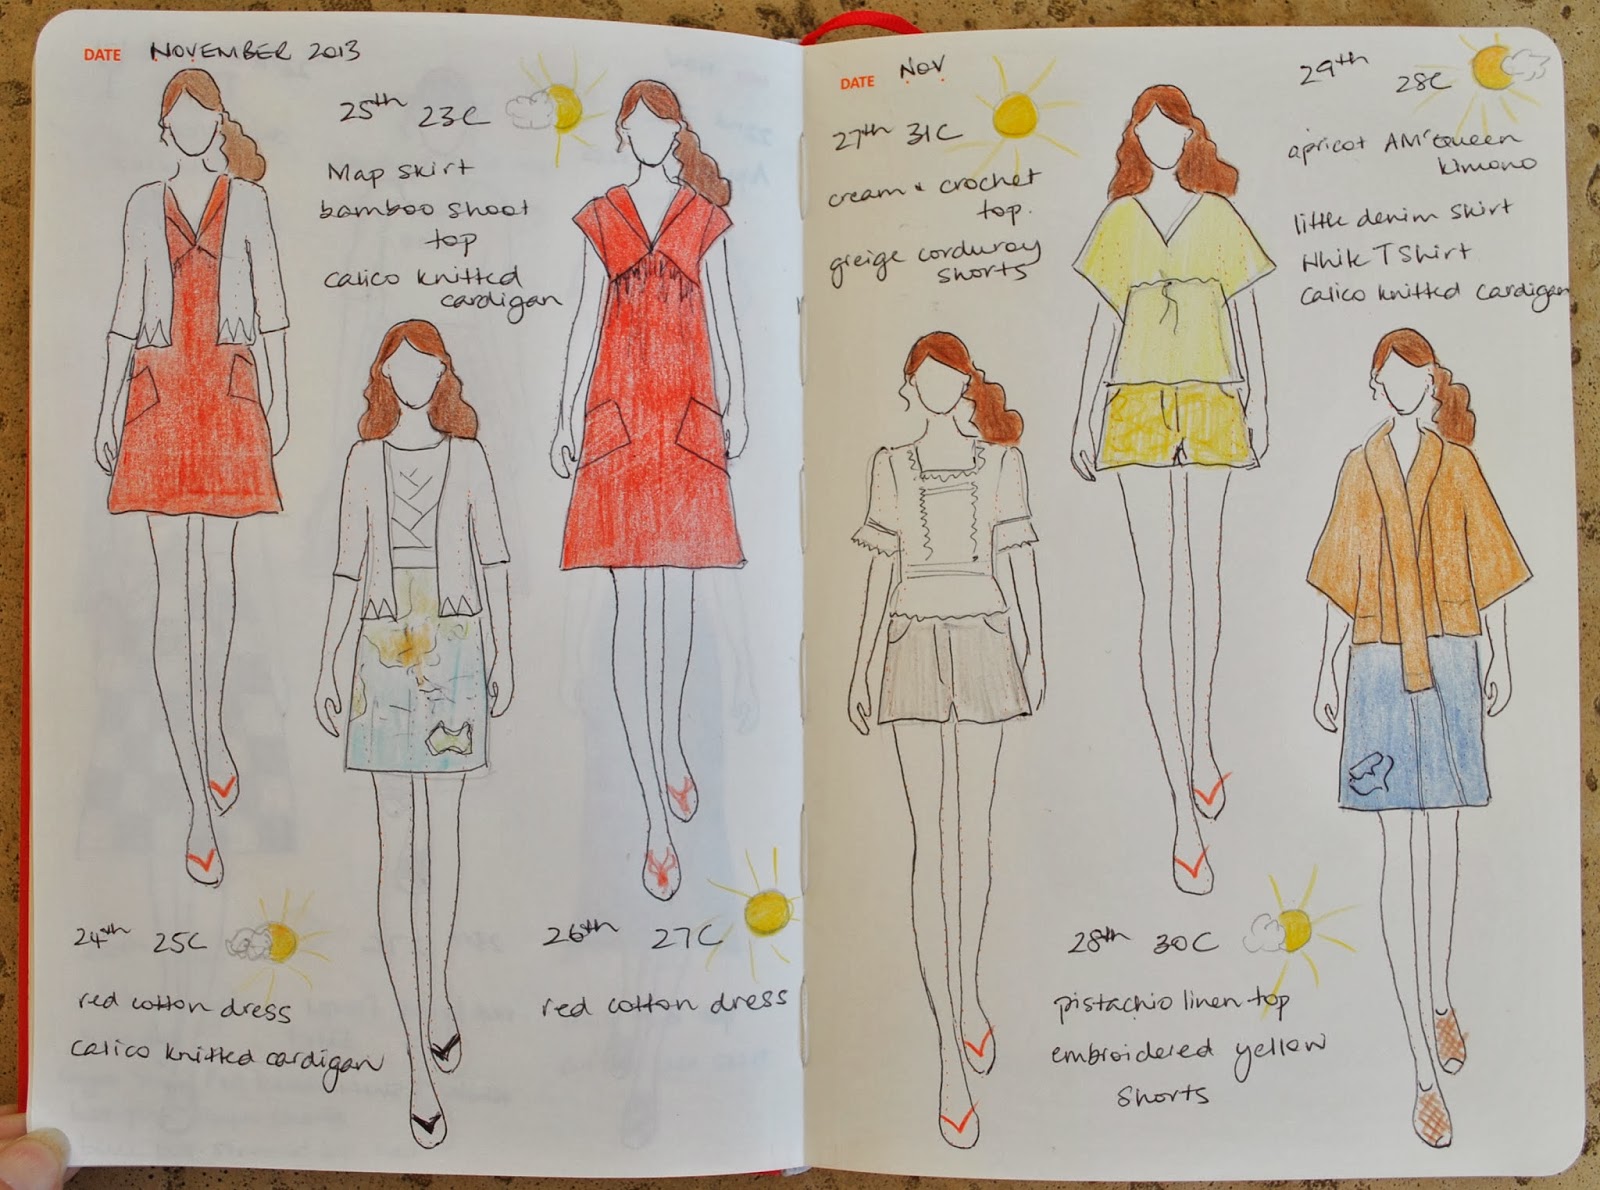 DATE NOVEMBER 2013
25th 23C
Map skirt
bamboo shoot
top
calico knitted
cardigan
24th 25C
red cotton dress
calico knitted cardigan
26th 27C
red cotton dress
DATE NOV
27th 31C
cream & crochet
top.
greige corduroy
shorts
29th 28C
apricot AMcQueen
kimono
little denim skirt
White T Shirt
calico knitted cardigan
28th 30C
pistachio linen top
embroidered yellow
shorts